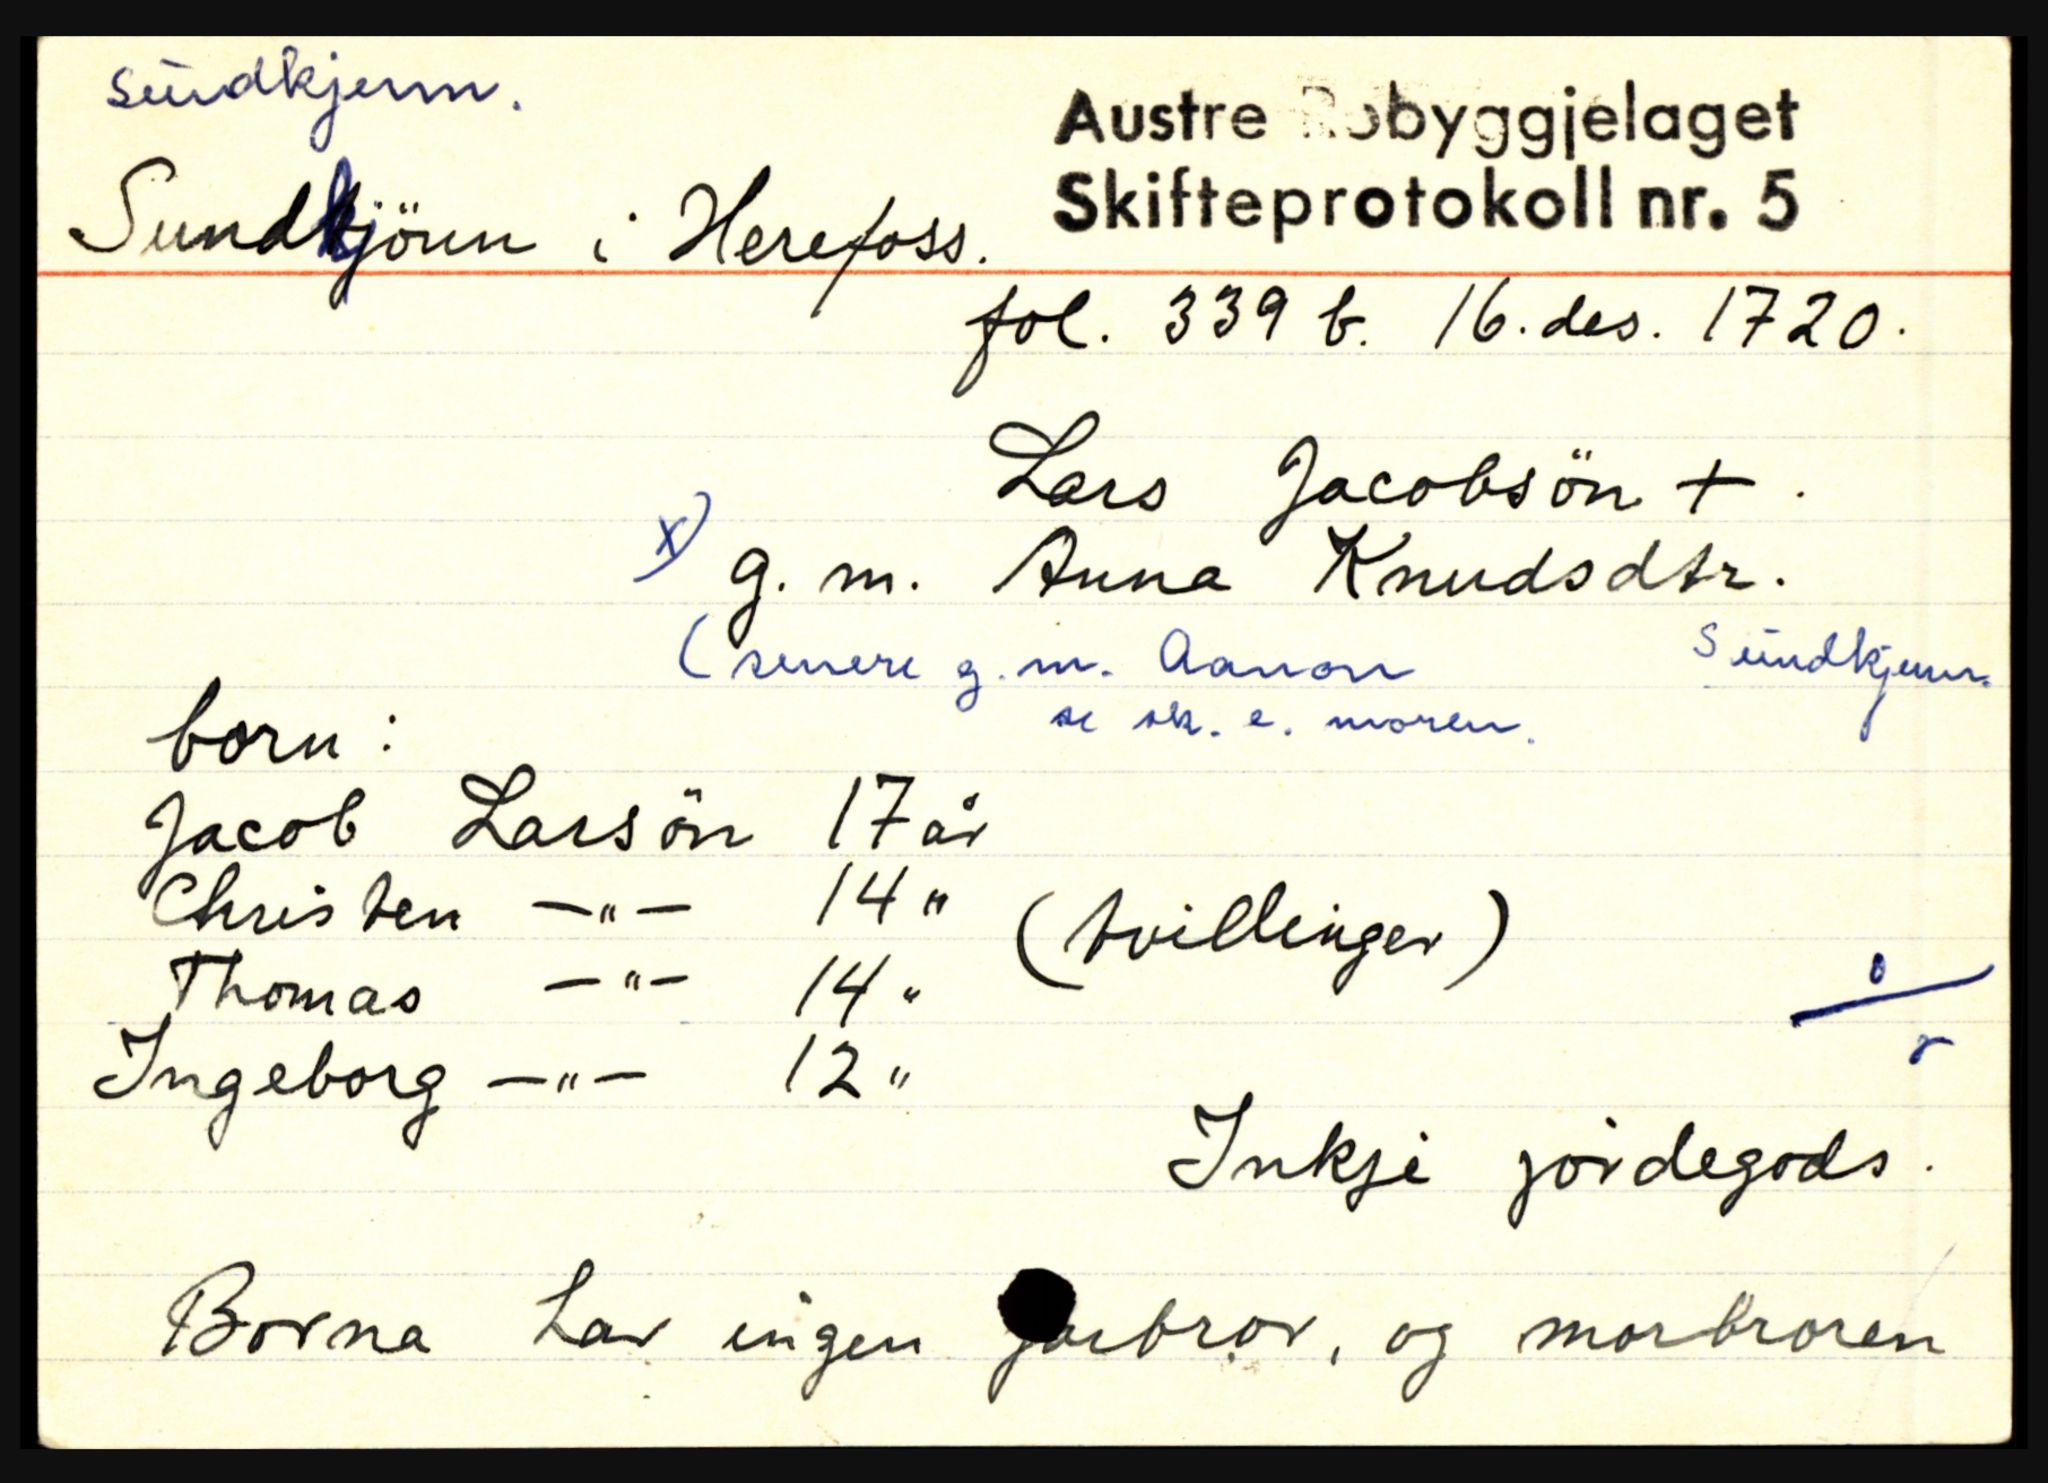 Sündkjenn.
Austre Robyggjelaget
Skifteprotokoll nr. 5
Sundkjönn i Herefoss.
fol. 339 b. 16. des. 1720.
Lars Jacobsön +.
x) g. m. Anna Knudsdtr.
(senere g. m. Aanon Sündkjenn.
se sk. e. moren.
born:
Jacob Larsön 17 år
Christen —„— 14 " (tvillinger)
Thomas —"— 14 "
Ingeborg —„— 12 "
Inkje jordegods.
Borna har ingen farbror, og morbroren